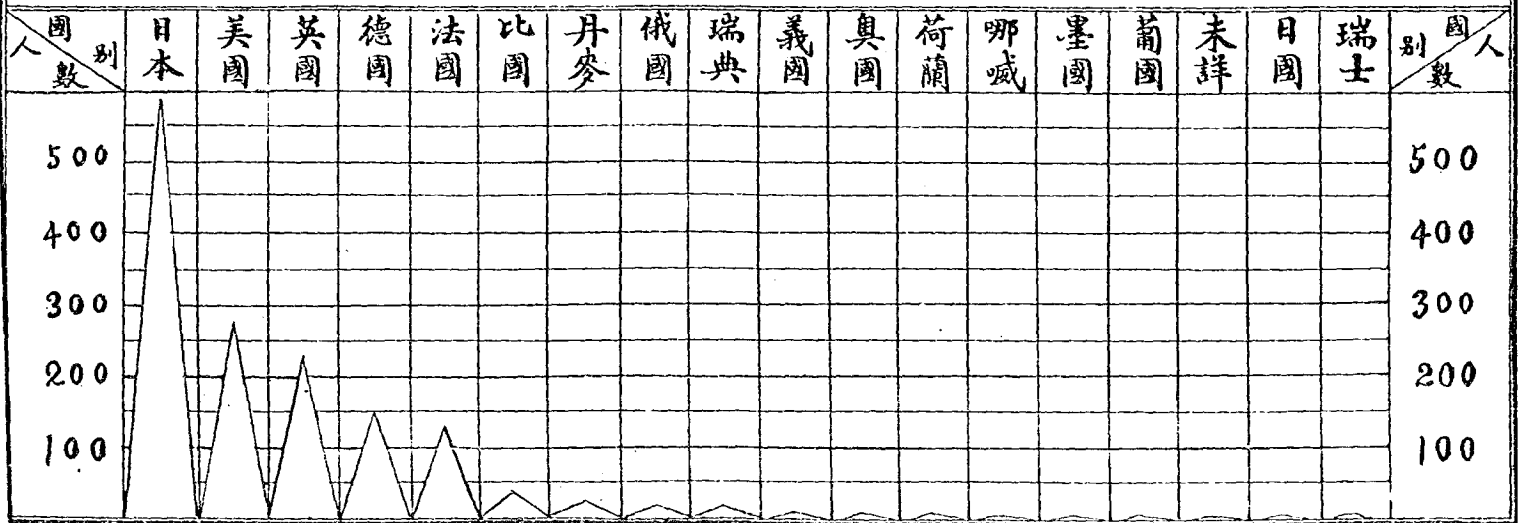 國別人數 日本 美國 英國 德國 法國 比國 丹麥 俄國 瑞典 義國 奧國 荷蘭 哪威 墨國 葡國 未詳 日國 瑞士 國別人數
500 500
400 400
300 300
200 200
100 100